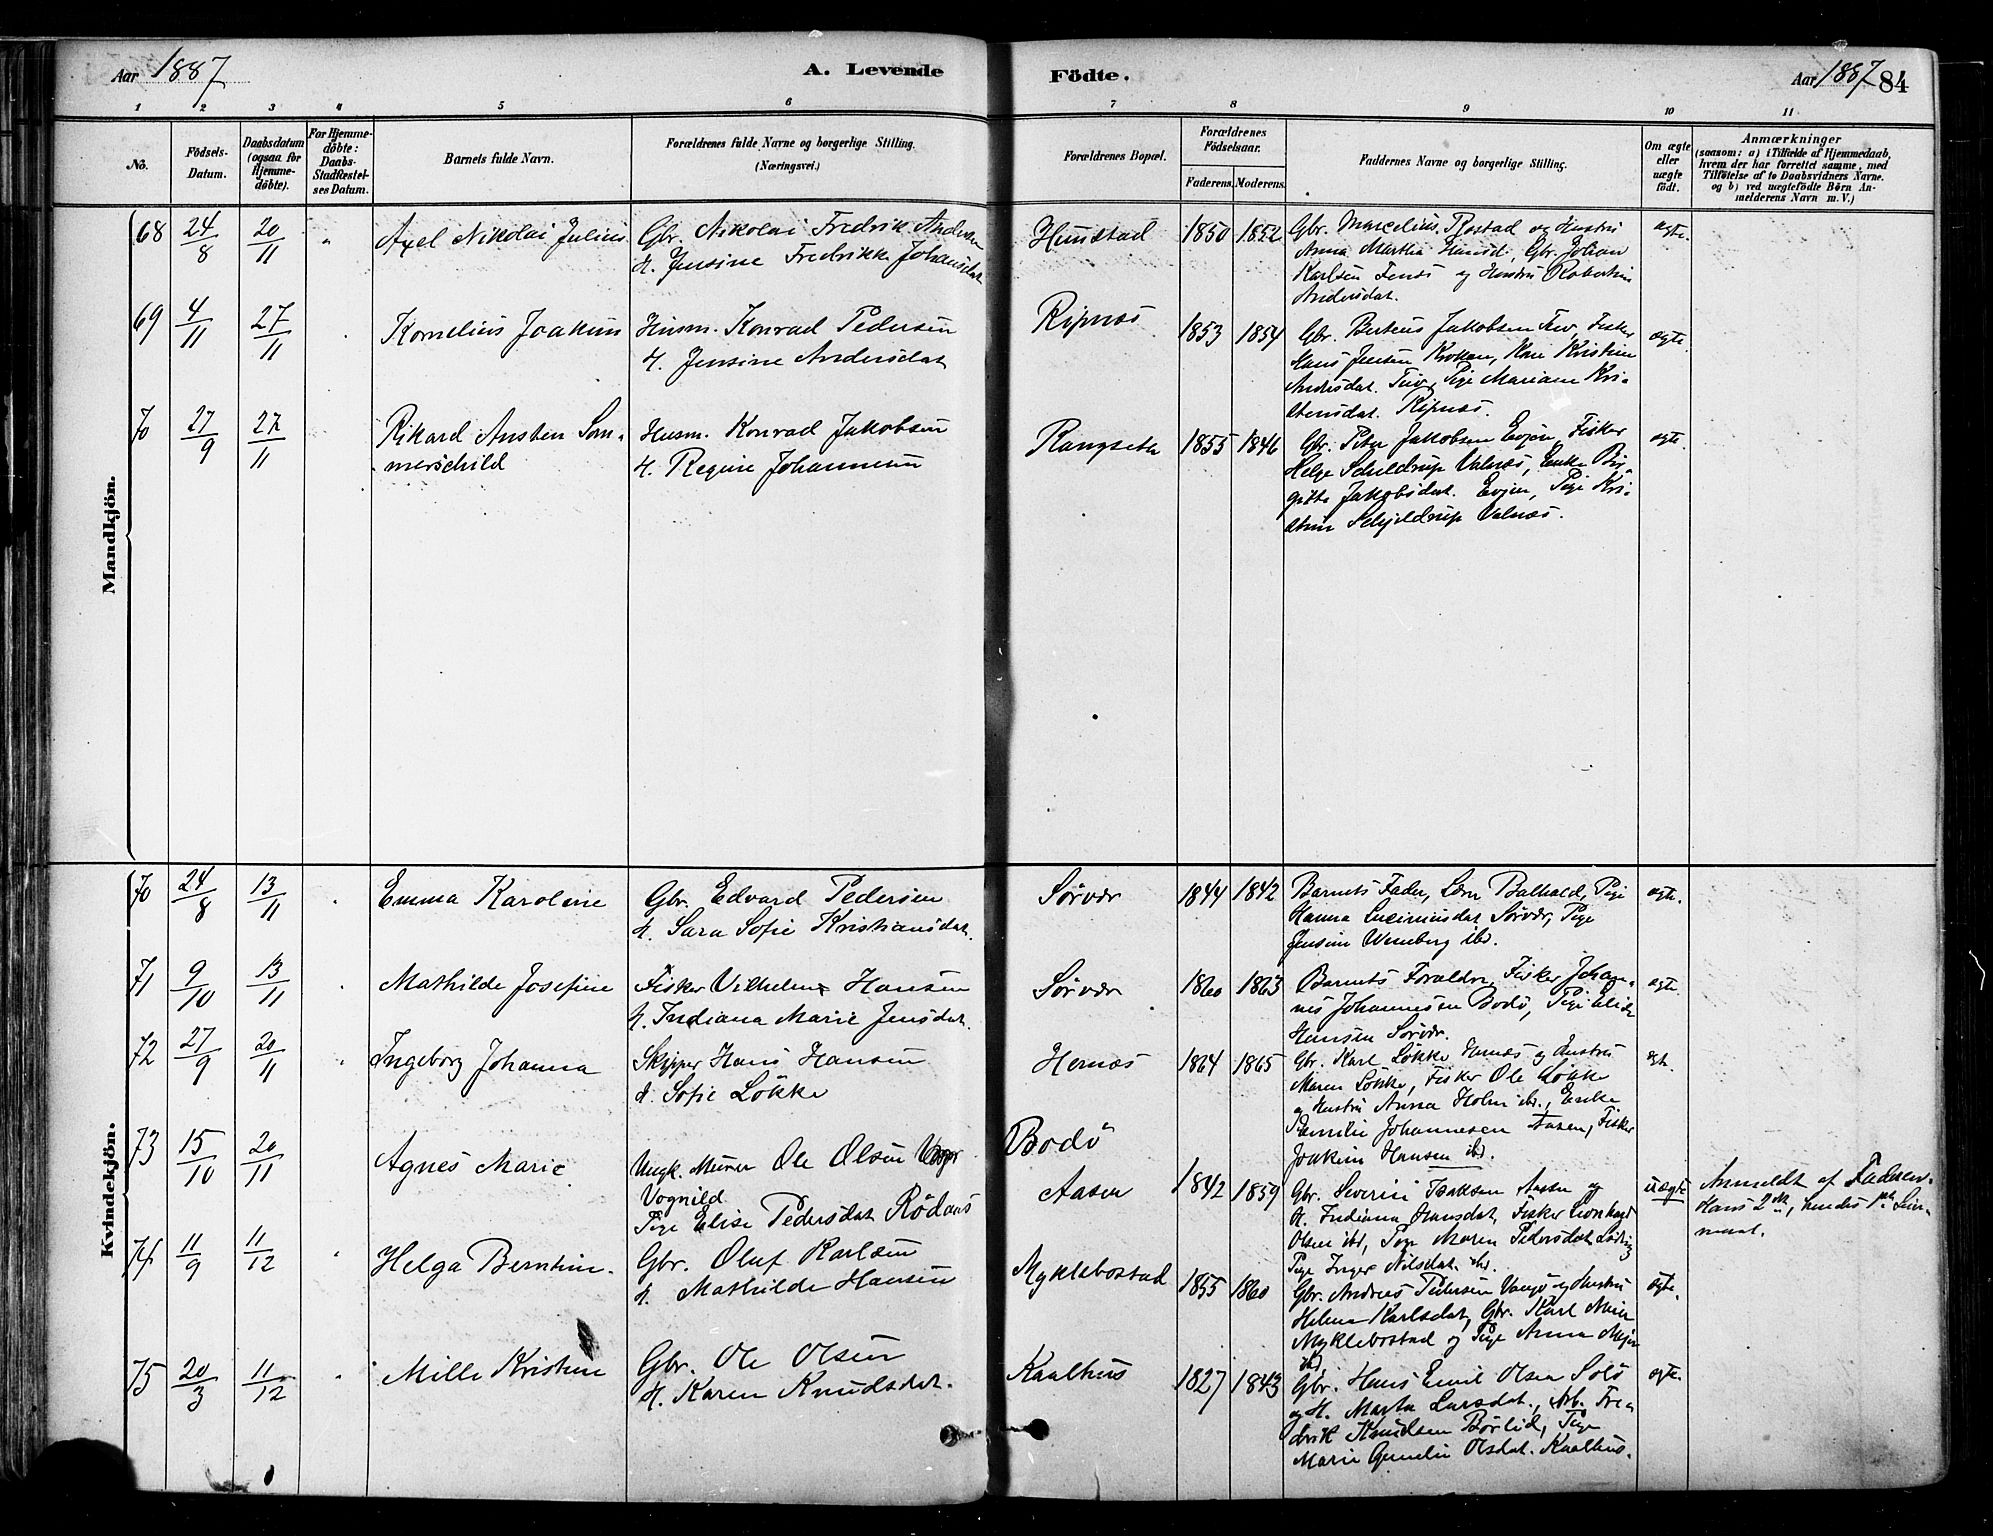 Aar 1887
A. Levende
Födte.
Aar 1887 84
1 2 3 4 5 6 7 8 9 10 11
No.
Födsels-
Datum.
Daabsdatum
(ogsaa for
Hjemme-
döbte).
For Hjemme-
döbte:
Daabs-
Stadfæstel-
ses Datum.
Barnets fulde Navn.
Forældrenes fulde Navne og borgerlige Stilling.
(Næringsvei.)
Forældrenes Bopæl.
Forældrenes
Födselsaar.
Faderens. Moderens.
Faddernes Navne og borgerlige Stilling.
Om ægte
eller
uægte
födt.
Anmærkninger
(saasom: a) i Tilfælde af Hjemmedaab,
hvem der har forrettet samme, med
Tilföielse af to Daabsvidners Navne.
og b) ved uægtefödte Börn An-
melderens Navn m. V.)
Mandkjön.
68 24/8 20/11 " Axel Nikolai Julius Gbr. Nikolai Fredrik Andersen
H. Jensine Fredrikke Johansdat
Hunstad 1850 1852 Gbr. Marcelius Rostad og Hustru ægte.
Anna Martha Hansd., Gbr. Johan
Karlsen Fenes og Hustru Robertine
Andersdat.
69 4/11 27/11 Kornelius Joakim Husm. Konrad Pedersen
H. Jensine Andersdat
Ripnæs 1853 1854 Gbr. Berteus Jakobsen Tuv, Fisker ægte.
Hans Jensen Kvokken, Kone Kristine
Andersdat. Tuv, Pige Mariane Kri-
stensdat. Ripnæs.
70 27/9 27/11 Rikard Austen Som-
merschild
Husm. Konrad Jakobsen
H. Regine Johannesen
Rangsete 1855 1846 Gbr. Peter Jakobsen Evjen, Fisker ægte
Helge Schjeldrup Valnæs, Enke Bir-
gitte Jakobsdat. Evjen, Pige Kri-
stine Schjeldrup Valnæs.
Kvindekjön.
70 24/8 13/11 Emma Karoline Gbr. Edvard Pedersen
H. Sara Sofie Kristiansdat.
Sørvær 1844 1842 Barnets Fader, Lærer Balhald, Pige ægte.
Hanna Lucimusdat Sørvær, Pige
Jensine Wenberg ibd.
71 9/10 13/11 Mathilde Josefine Fisker Vilhelm Hansen
H. Indiana Marie Jensdat.
Sørvær 1860 1863 Barnets Forældre, Fisker Johan- ægte.
nes Johannesen Bodø, Pige Elide
Hansen Sørvær.
72 27/9 20/11 Ingeborg Johanna Skipper Hans Hansen
H. Sofie Løkke
Hernæs 1864 1865 Gbr. Karl Løkke Hernæs og Hustru ægte.
Maren Løkke, Fisker Ole Løkke
og Hustru Anna Holm ibd., Enke
Emilie Johannesen Aasen, Fisker
Joakim Hansen ibd.
73 15/10 20/11 Agnes Marie. Ungk. Murer Ole Olsen
Vognild
Pige Elise Pedersdat Rödaas
Bodö
Aasen 1842 1859 Gbr. Severin Isaksen Aasen og uægte Anmeldt af Faderen.
H. Indiana Hansdat, Fisker Leonhard Hans 2den, hendes 1ste Leier-
Olsen ibd, Pige Maren Pedersdat Løding maal.
Pige Inger Nilsdat. ibd.
74 11/9 11/12 Helga Berntine. Gbr. Oluf Karlsen
H. Mathilde Hansen
Myklebostad 1855 1860 Gbr. Andreas Pedersen Vaagø og Hustru ægte.
Helena Karlsdat, Gbr. Karl Meier
Myklebostad og Pige Anna Meier
ibd.
75 20/3 11/12 Mille Kristine Gbr. Ole Olsen
H. Karen Knudsdat.
Kaalhus 1827 1843 Gbr. Hans Emil Olsen Solø ægte.
og H. Marta Larsdat., Arb. Fre-
drik Knudsen Börlid, Pige
Marie Gunelie Olsdat. Kaalhus.